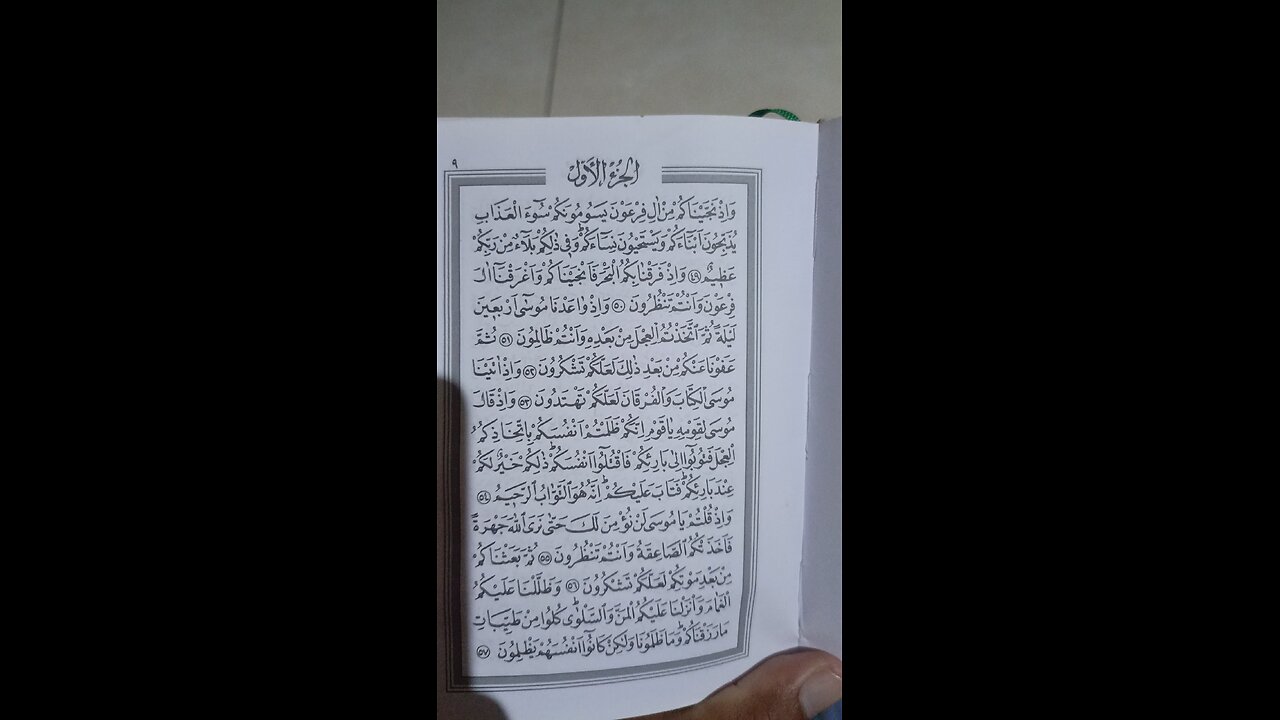 ٩
الجزء الأول
وَاِذْ نَجَّيْنَاكُمْ مِنْ اٰلِ فِرْعَوْنَ يَسُومُونَكُمْ سُٓوءَ الْعَذَابِ
يُذَبِّحُونَ اَبْنَٓاءَكُمْ وَيَسْتَحْيُونَ نِسَٓاءَكُمْۜ وَف۪ي ذٰلِكُمْ بَلَٓاءٌ مِنْ رَبِّكُمْ
عَظ۪يمٌ ﴿٤٩﴾ وَاِذْ فَرَقْنَا بِكُمُ الْبَحْرَ فَاَنْجَيْنَاكُمْ وَاَغْرَقْنَٓا اٰلَ
فِرْعَوْنَ وَاَنْتُمْ تَنْظُرُونَ ﴿٥٠﴾ وَاِذْ وٰعَدْنَا مُوسٰٓى اَرْبَع۪ينَ
لَيْلَةً ثُمَّ اتَّخَذْتُمُ الْعِجْلَ مِنْ بَعْدِه۪ وَاَنْتُمْ ظَالِمُونَ ﴿٥١﴾ ثُمَّ
عَفَوْنَا عَنْكُمْ مِنْ بَعْدِ ذٰلِكَ لَعَلَّكُمْ تَشْكُرُونَ ﴿٥٢﴾ وَاِذْ اٰتَيْنَا
مُوسَى الْكِتَابَ وَالْفُرْقَانَ لَعَلَّكُمْ تَهْتَدُونَ ﴿٥٣﴾ وَاِذْ قَالَ
مُوسٰى لِقَوْمِه۪ يَا قَوْمِ اِنَّكُمْ ظَلَمْتُمْ اَنْفُسَكُمْ بِاتِّخَاذِكُمُ
الْعِجْلَ فَتُوبُٓوا اِلٰى بَارِئِكُمْ فَاقْتُلُٓوا اَنْفُسَكُمْۜ ذٰلِكُمْ خَيْرٌ لَكُمْ
عِنْدَ بَارِئِكُمْۜ فَتَابَ عَلَيْكُمْۜ اِنَّهُ هُوَ التَّوَّابُ الرَّح۪يمُ ﴿٥٤﴾
وَاِذْ قُلْتُمْ يَا مُوسٰى لَنْ نُؤْمِنَ لَكَ حَتّٰى نَرَى اللّٰهَ جَهْرَةً
فَاَخَذَتْكُمُ الصَّاعِقَةُ وَاَنْتُمْ تَنْظُرُونَ ﴿٥٥﴾ ثُمَّ بَعَثْنَاكُمْ
مِنْ بَعْدِ مَوْتِكُمْ لَعَلَّكُمْ تَشْكُرُونَ ﴿٥٦﴾ وَظَلَّلْنَا عَلَيْكُمُ
الْغَمَامَ وَاَنْزَلْنَا عَلَيْكُمُ الْمَنَّ وَالسَّلْوٰىۜ كُلُوا مِنْ طَيِّبَاتِ
مَا رَزَقْنَاكُمْۜ وَمَا ظَلَمُونَا وَلٰكِنْ كَانُٓوا اَنْفُسَهُمْ يَظْلِمُونَ ﴿٥٧﴾